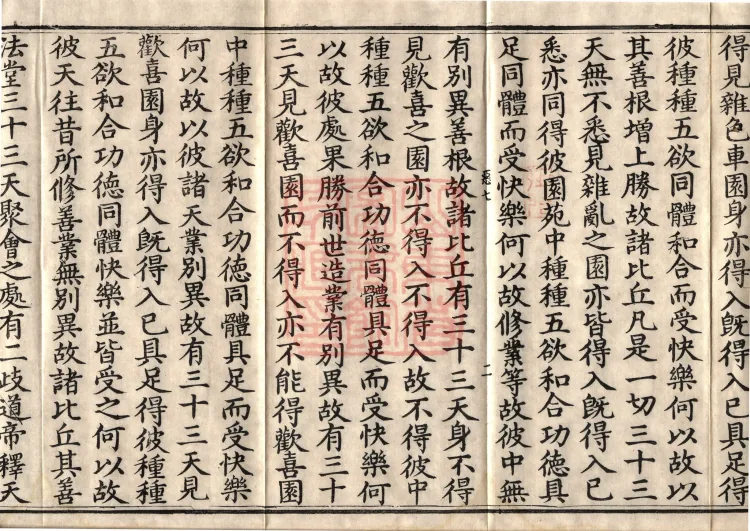 得見雜色車園身亦得入旣得入已具足得
彼種種五欲同體和合而受快樂何以故以
其善根增上勝故諸比丘凡是一切三十三
天無不悉見雜亂之園亦皆得入旣得入已
悉亦同得彼園苑中種種五欲和合功徳具
足同體而受快樂何以故修業等故彼中無
七 二
有別異善根故諸比丘有三十三天身不得
見歡喜之園亦不得入不得入故不得彼中
種種五欲和合功徳同體具足而受快樂何
以故彼處果勝前世造業有別異故有三十
三天見歡喜園而不得入亦不能得歡喜園
中種種五欲和合功徳同體具足而受快樂
何以故以彼諸天業別異故有三十三天見
歡喜園身亦得入旣得入已具足得彼種種
五欲和合功徳同體快樂並皆受之何以故
彼天往昔所修善業無別異故諸比丘其善
法堂三十三天聚會之處有二歧道帝釋天